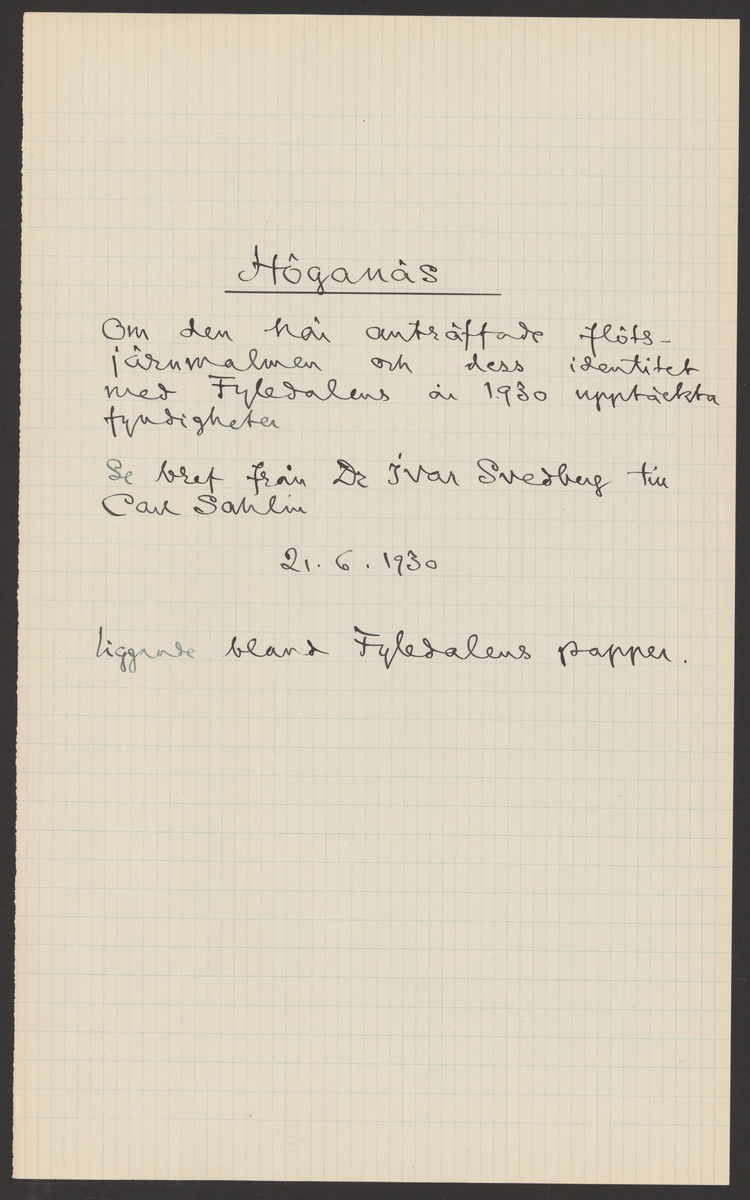 Höganäs
Om den här anträffade flöts-
järnmalmen och dess identitet
med Fyledalens år 1930 upptäckta
fyndigheter
Se bref från Dr Ivar Svedberg till
Carl Sahlin
21. 6. 1930
liggande bland Fyledalens papper.